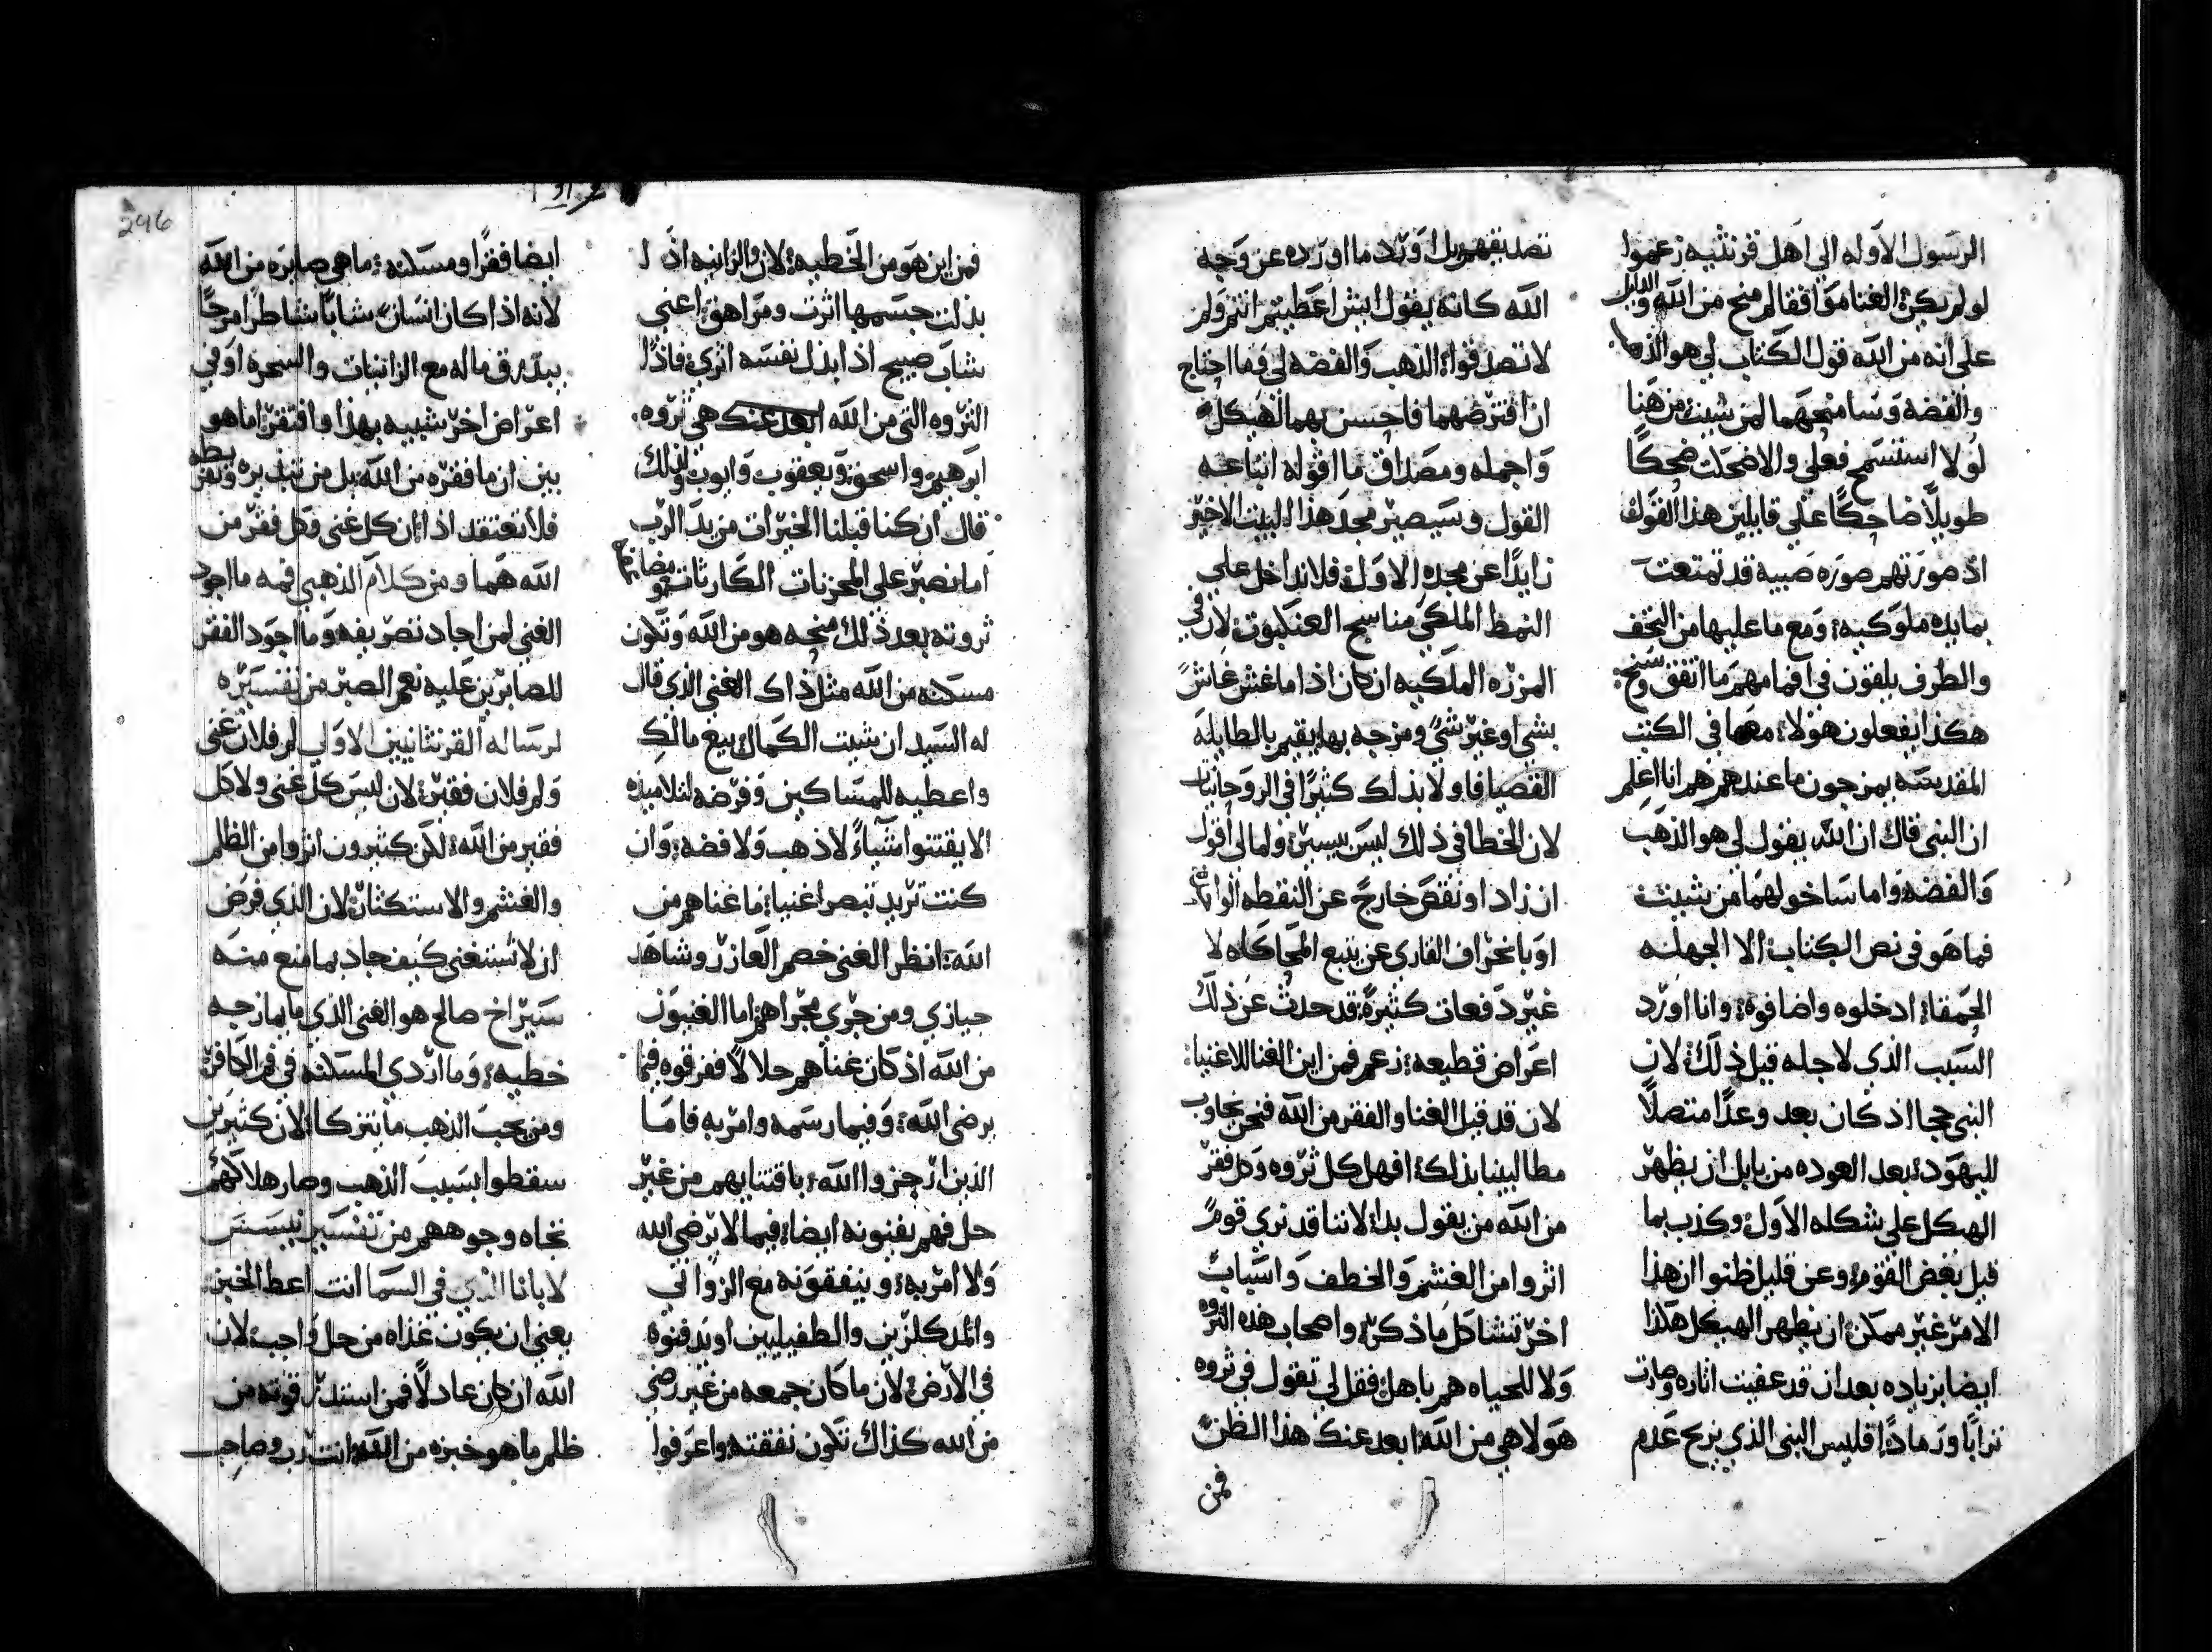 الرسول الاوله الي اهل قرنثيه زعموا
لو لم يكن الغنا موافقا لم منح من الله والدليل
على انه من الله قول الكتاب لي هو الذهب
والفضه وسامنحهما لمن شيت من هنا
لولا استسمج فعلي والا ضحكت ضحكًا
طويلًا ضاحكًا على قايلين هذا القول
اذ صورتهم صوره صبيه قد تمتعت
بمايده ملوكيه ومع ما عليها من التحف
والطرف يلقون في افمامهم ما اتفق وسنح
هكذا يفعلون هولا مهما في الكتب
المقدسه يمزجون ما عندهم هم انا اعلم
ان النبي قال ان الله يقول لي هو الذهب
والفضه واما ساخولهما من شيت
فما هو في نص الكتاب الا الجهله
الحمقا ادخلوه واضافوه وانا اورد
السبب الذي لاجله قيل ذلك لان
النبي حجا اذ كان يعد وعدًا متصلًا
لليهود بعد العوده من بابل ان يظهر
الهيكل على شكله الاول وكذب بما
قيل بعض القوم وعن قليل ظنوا ان هذا
الامر غير ممكن ان يظهر الهيكل هكذا
ايضا بزياده بعد ان قد عفيت اثاره وصارت
ترابًا ورمادًا فليس النبي الذي يزيح عدم
تصديقهم بل اورد ما اورده عن وجه
الله كانه يقول ايش اعطيتم انتم ولم
لا تصدقوا الذهب والفضه لي فما احتاج
ان اقترضهما فاحسن بهما الهيكل
واجمله ومصداق ما اقوله اتباعه
القول وسيصير مجد هذا البيت الاخير
زايدًا عن مجده الاول فلا تداخل على
النمط الملكي مناسج العنكبوت لان في
المززه الملكيه ان كان اذا ما غش غاش
بشي او غير شي ومزجه بها يقيم بالطايله
القصيا فاولا بذلك كثيرًا في الروحانيات
لان الخطا في ذلك ليس بيسير ولما لي اقول
ان زاد او نقص خارج عن النقطه
او بانحراف القاري عن تتبع المحاكاه لا
غير دفعات كثيرة قد حدث عن ذلك
اعراض قطيعه زعم فمن اين الغنا للاغنيا
لان قد قيل الغنا والفقر من الله فنحن نجاوب
مطالبينا بذلك افهل كل ثروه وكل فقر
من الله من يقول بدا لاننا قد نري قومً
اثروا من الغشم والخطف واسباب
اخر تشاكل ما ذكر واصحاب هذه الثروه
ولا للحياه هم باهل فقل لي تقول في ثروه
هولا هي من الله ابعد عنك هذا الظن
فمن
296
فمن اين هو من الخطيه لان والزانيه اذا
بذلت جسمها اثرت ومراهق اعني
شاب صبيح اذا بذل نفسه اثري فاذًا
الثروه التي من الله ابعد عنك هي ثروه
ابرهيم واسحق ويعقوب وايوب ولذلك
قال ان كنا قبلنا الخيرات من يد الرب
اما نصبر على المحزنات الكارثات
ثروته بعد ذلك منحه هو من الله وتكون
مسكنه من الله مثل ذاك الغني الذي قال
له السيد ان شيت الكمال بيع مالك
واعطيه للمساكين وفرضه لتلاميذه
الا يقتنوا شياءً لا ذهب ولا فضه وان
كنت تريد تبصر اغنيا ما غناهم من
الله انظر الغني خصم العازر وشاهد
جيازي ومن جري مجراهم اما الغنيون
من الله اذ كان غناهم حلالًا ففرقوه فيما
يرضي الله وفيما رسمه وامر به فاما
الذين ازجروا الله باقتنايهم من غير
حل فهم يفنونه ايضا فيما لا يرضي الله
ولا امر به وينفقونه مع الزواني
والمدكلزين والطفيليين او يدفنوه
في الارض لان ما كان جمعه من غير رضي
من الله كذاك تكون نفقته واعرفوا
ايضا فقرًا ومسكنه ما هي صايره من الله
لانه اذا كان انسان شابًا شاطرًا مرحًا
يبدرق ماله مع الزانيات والسحره او في
اعراض اخر شبيه بهذا وافتقر اما هو
بين ان ما فقره من الله بل من تبذيره وتفريطه
فلا تعتقد اذا ان كل غني وكل فقر من
الله هما ومن كلام الذهبي فمه ما اجود
الغني لمن اجاد تصريفه وما اجود الفقر
للصابرين عليه نعم الصبر من تفسيره
لرساله القرنثانيين الاولي لم فلان غني
ولم فلان فقير لان ليس كل غني ولا كل
فقير من الله لكن كثيرون اثروا من الظلم
والغشم والاستكثار لان الذي فرض
ان لا تستغني كيف جاد بما منع منه
سيراخ صالح هو الغني الذي ما يمازجه
خطيه وما اردي المسكنه في فم الكافر
ومن يحب الذهب ما يتزكا لان كثيرين
سقطوا بسبب الذهب وصار هلاكهم
تجاه وجوههم من تفسير نيسس
لابانا الذي في السما انت اعط الخبز
يعني ان يكون غذاه من حل واجب لان
الله ان كان عادلًا فمن استدر قوته من
ظلم ما هو خبزه من الله وانت رب وصاحب